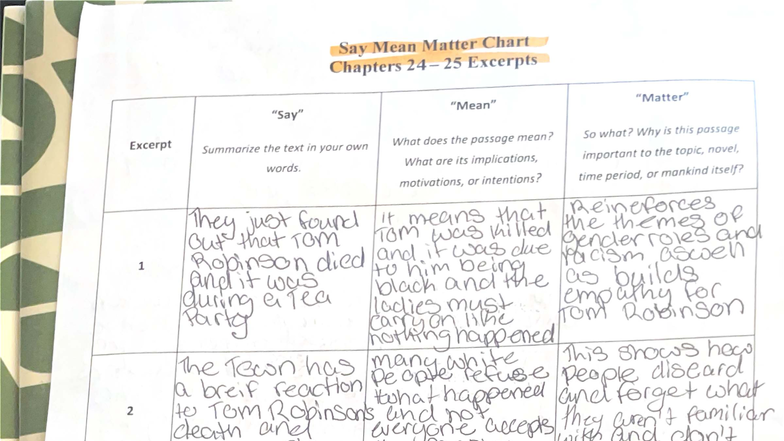 Say Mean Matter Chart
Chapters 24 – 25 Excerpts
Excerpt
"Say"
Summarize the text in your own
words.
"Mean"
What does the passage mean?
What are its implications,
motivations, or intentions?
"Matter"
So what? Why is this passage
important to the topic, novel,
time period, or mankind itself?
1
They just found
out that Tom
Robinson died
and it was
during a Tea
Party
it means that
Tom was killed
and it was due
to him being
black and the
ladies must
carry on like
nothing happened
Reineforces
the themes of
gender roles and
racism aswell
as builds
empathy for
Tom Robinson
2
The Town has
a breif reaction
to Tom Robinsons
death and
many white
people refuse
what happened
and not
everyone accepts
This shows how
people discard
and forget what
they aren't familiar
with and don't